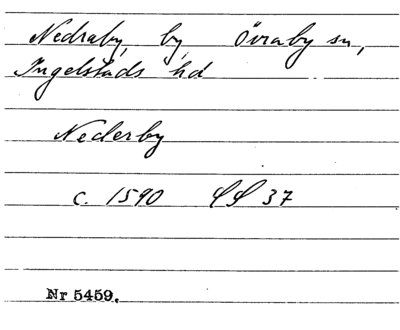 Nedraby, by, Övraby sn,
Ingelstads hd
Nederby
c. 1590 SS 37
Nr 5459.